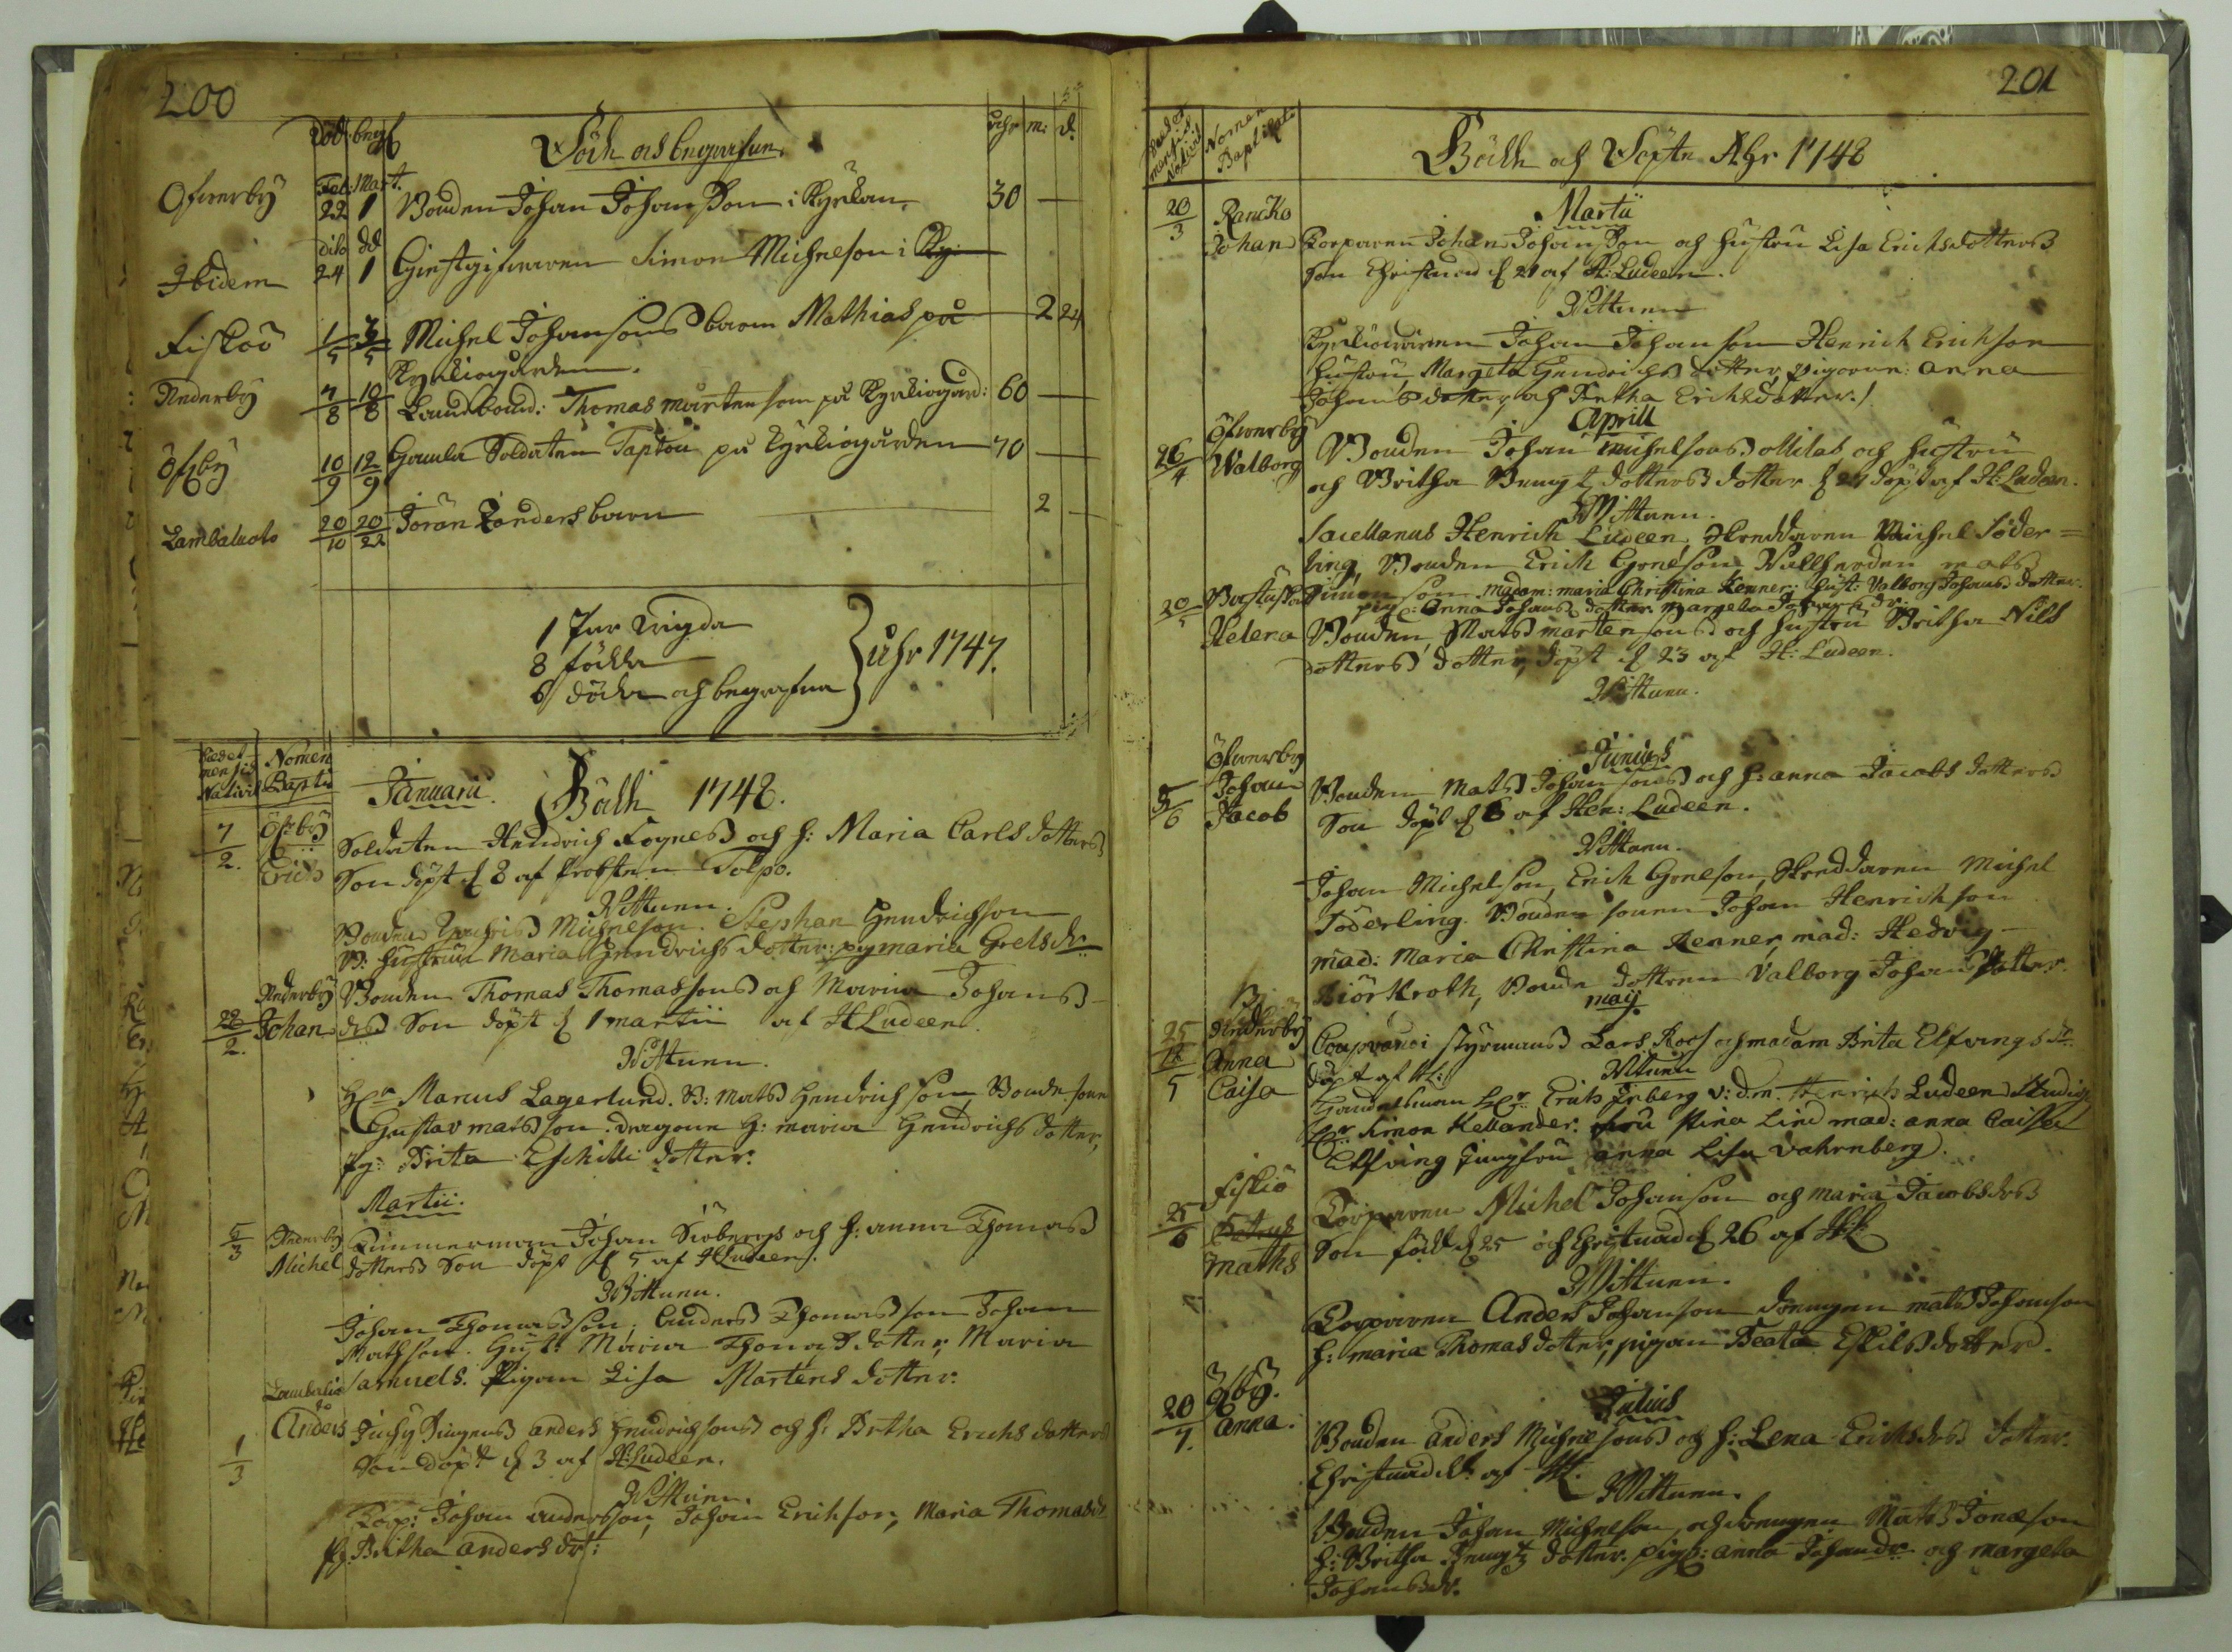 200
Död: begrf
Döde och begrafne
åhr m: d.
Feb: Mart.
Öfwerby 22 1 Bonden Johan Johansson i Kyrkan, 30 —
dito dd
Ibidem 24 1 Giestgifwaren Simon Michelson i Ky:
Fiskiö 1/5 3/5 Michel Johansons barn Mathias på 2 24
Kyrkiogården.
Nederby 7/8 10/8 Landbond: Thomas mårtenson på Kyrkiogård: 60 —
Öfby 10/9 12/9 Gamla Soldaten Tapton på Kyrkiogården 70 —
Lambaluoto 20/10 20/22 Jöran Zanders barn 2 —
1 Par wigda
8 födda
6 döda och begrafna
åhr 1747.
mensis Nativit
Nomen Baptis
Januarii. Född 1748.
7/2. Öfby Soldaten Hendrich Fogness och h: Maria Carls dotters
Erich Son döpt d 8 af Probsten Tolpo.
Wittnen.
Bonden Michelson. Stephan Hendrichson
B: hustru Maria Hendrichs dotter: pig maria Grels dr
Nederby Bonden Thomas Thomassons och Maria Johans
22/2. Johan drs Son döpt d 1 martii af H Ludeen.
Wittnen.
Hr Marcus Lagerlund. B: Mats Hendrichson, Bonde sonen
Gustav matsson. dragoun h: maria Hendrichs dotter,
Pig: Brita Eschilli dotter.
Martii.
5/3 Nederby Timmerman Johan Siöbergs och h: anna Thomas
Michel dotters Son döpt d 5 af H Ludeen.
Wittnen.
Johan Thomasson, Anders Thomasson Johan
Mathson. Hust: Maria Thomasdotter, Maria
Samuels. Pigan Lisa Mårtens dotter.
Lambaluoto
Anders anders Hendrichsons och h: Britha Erichs dotters
1/3 Son döpt d 3 af H: Ludeen.
Wittnen.
Torp: Johan andersson, Johan Erichson, Maria Thomasdr
Pig. Britha anders dr:
201
mensis Nativit
Nomen Baptizat:
Född och Döpte Åhr 1748
Martii
20/3 Rancko
Johan Torparen Johan Johansson och hustru Lisa Erichsdotters
Son Christnad d 21 af H: Ludeen.
Wittnen
Kyrkiowärden Johan Johanson Henrich Erichson
hustru Margeta Hendrichs dotter, pigorne: anna
Johans dotter, och Britha Erichsdotter.
Aprill
Öfwerby
26/4 Walborg Bonden Johan Michelsons ollilas och hustru
och Britha Bengtz dotters dotter d 27 döpt af H: Ludeen.
Wittnen.
Sacellanus Henrich Ludeen, Skreddaren Michel Söder=
ling, Bonden Erich Grelson, Wallherden mats
20/5 Simonson Madam: maria Christina Kenner; hust: Valborg Johans dotter.
pig: Anna Johans dotter Margeta Johans dr.
Helena Bonden Mats mårtensons och hustru Britha Nils
dotters dotter, döpt d 23 af H: Ludeen.
Wittnen.
Junius
Öfwerby
5/6 Johan Bonden Mats Johansons och h: anna Jacobs dotters
Jacob Son döpt d 6 af Hen: Ludeen.
Wittnen.
Johan Michelson, Erich Grelson, Skreddaren Michel
Söderling. Bonden sonen Johan Henrichson
mad: Maria Christina Kenner, mad: Hedvig
Biörkroth, Bonde dottren Valborg Johans dotter.
may.
Nederby
Anna styrmans Lars Roos och madam Brita Elfvings dr
Caisa döpt af H:
Wittnen
Handelsman Hr Erich Enberg v: d.m. Henrich Ludeen Studios
Hr Simon Kellander. fru Stina Lind mad: anna Caisa
Elfving jungfru anna Lisa Vahrnberg.
Fiskiö
25/6 maths Torparen Michel Johanson och maria Jacobs drs
Son född d 25 och Christnad d 26 af HL
Wittnen.
Torparen Anders Johanson drengen mats Johanson
h: maria Thomas dotter, pigan Beata Eskils dotter.
Öfby.
20/7. anna.
Julius
Bonden anders Michelsons och h: Lena Erichsdrs dotter.
Christnad af HL.
Wittnen.
Bonden Johan Michelson, och drengen Mats Jonæson
h: Britha Bengtz dotter. pig: anna Johansdr och margeta
Johansdr.